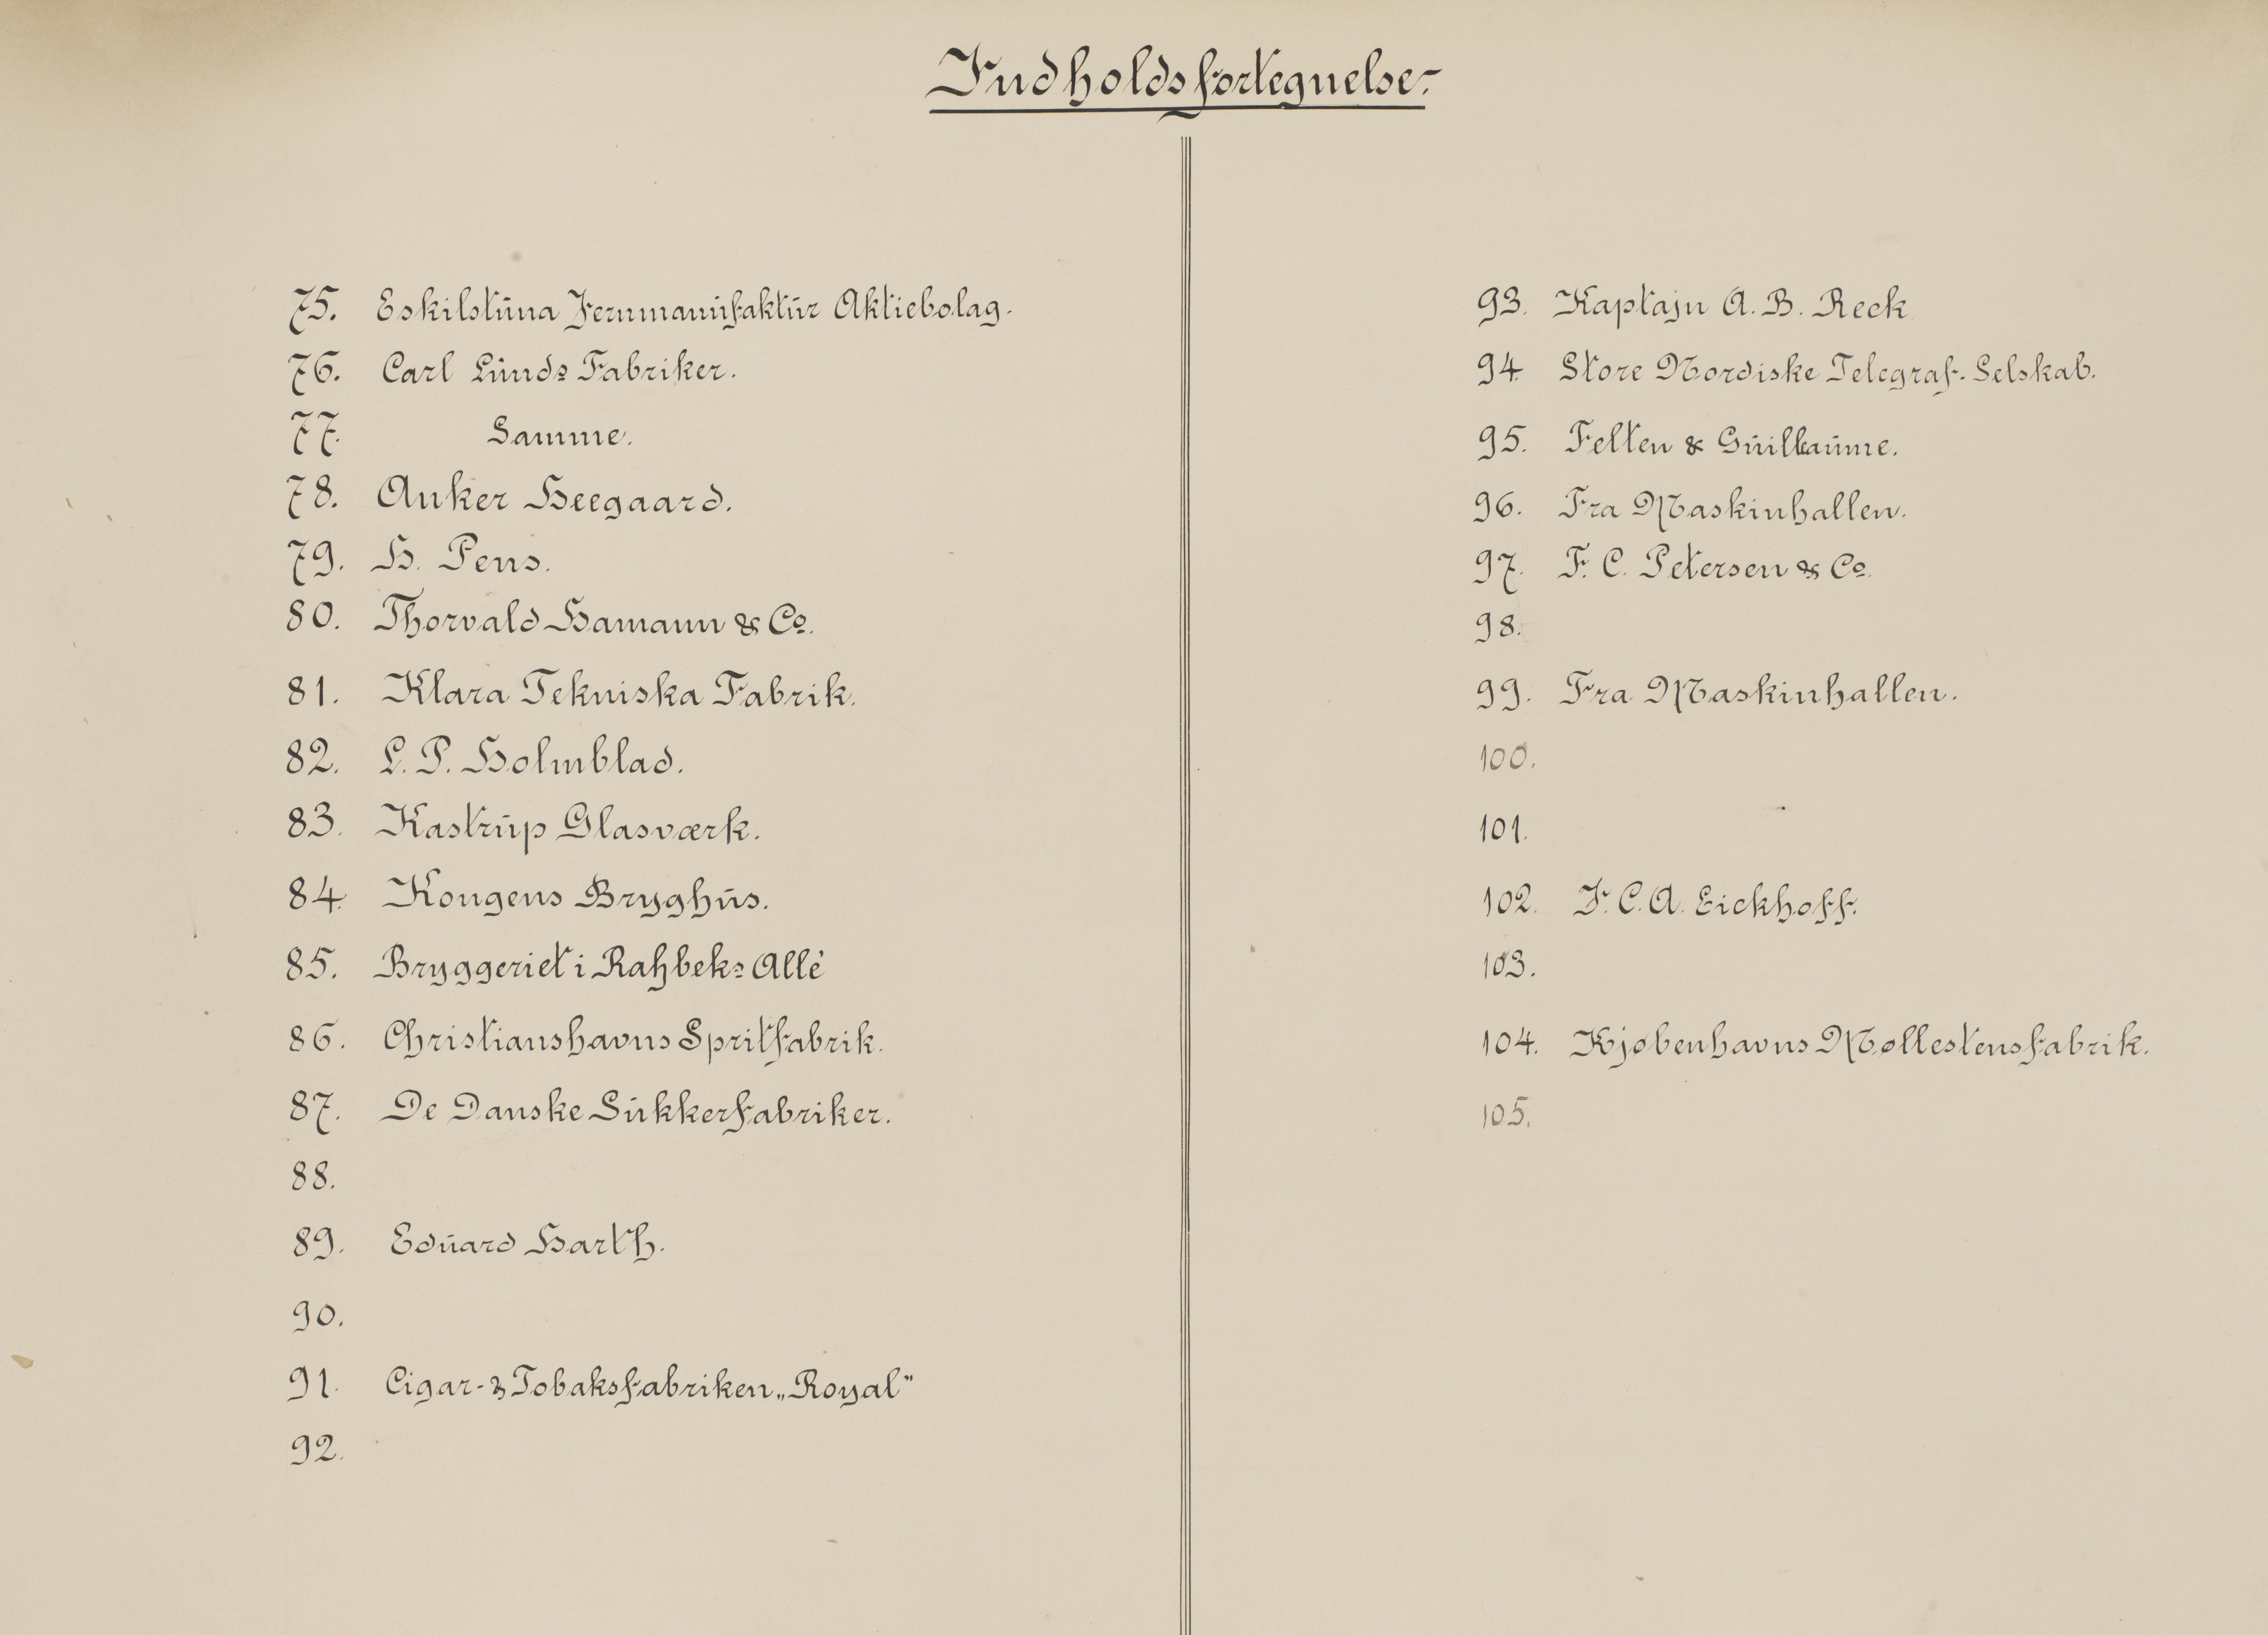 Indholdsfortegnelse.
75. Eskilstuna Jernmanufaktur Aktiebolag.
76. Carl Lunds Fabriker.
77. Samme.
78. Anker Heegaard.
79. H. Pens.
80. Thorvald Hamann & Co.
81. Klara Tekniska Fabrik.
82. L. P. Holmblad.
83. Kastrup Glasværk.
84. Kongens Bryghus.
85. Bryggeriet i Rahbeks Allé
86. Christianshavns Spritfabrik.
87. De Danske Sukkerfabriker.
88.
89. Eduard Harth.
90.
91. Cigar- & Tobaksfabriken „Royal"
92.
93. Kaptajn A. B. Reck
94. Store Nordiske Telegraf-Selskab.
95. Felten & Guilleaume.
96. Fra Maskinhallen.
97. F. C. Petersen & Co.
98.
99. Fra Maskinhallen.
100.
101.
102. J. C. A. Eickhoff.
103.
104. Kjøbenhavns Møllestensfabrik.
105.